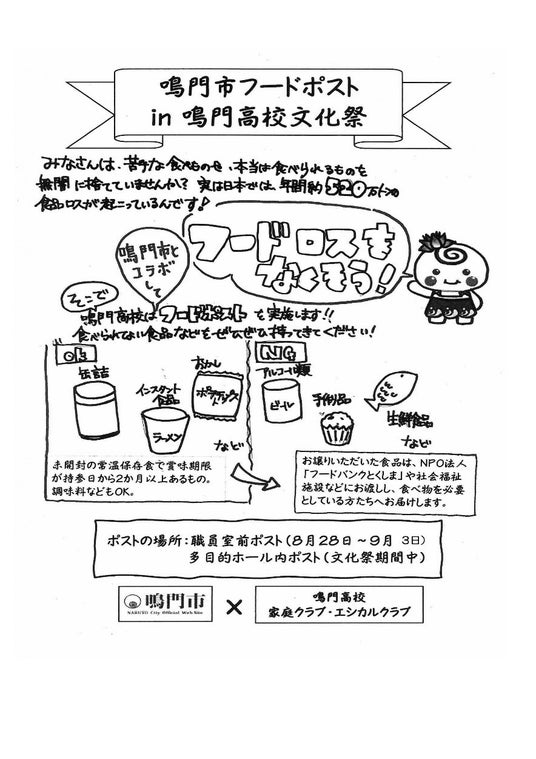 鳴門市フードポスト
in 鳴門高校文化祭
みなさんは、苦手な食べものを、本当は食べられるものを
無闇に捨てていませんか？ 実は日本では、年間約520万トンの
食品ロスが起こっているんです！
鳴門市と
コラボ
して
フードロスを
なくそう！
そこで
鳴門高校はフードポストを実施します!!
食べられてない食品などをぜひぜひ持ってきてください！
OK
缶詰
インスタント
食品
ラーメン
おかし
ポテトチップス
など
未開封の常温保存食で賞味期限
が持参日から2か月以上あるもの。
調味料などもOK。
NG
アルコール類
ビール
手作り品
生鮮食品
など
お譲りいただいた食品は、NPO法人
「フードバンクとくしま」や社会福祉
施設などにお渡しし、食べ物を必要
としている方たちへお届けします。
ポストの場所：職員室前ポスト（８月28日～９月 3日）
多目的ホール内ポスト（文化祭期間中）
鳴門市
NARUTO City Official Web Site
×
鳴門高校
家庭クラブ・エシカルクラブ